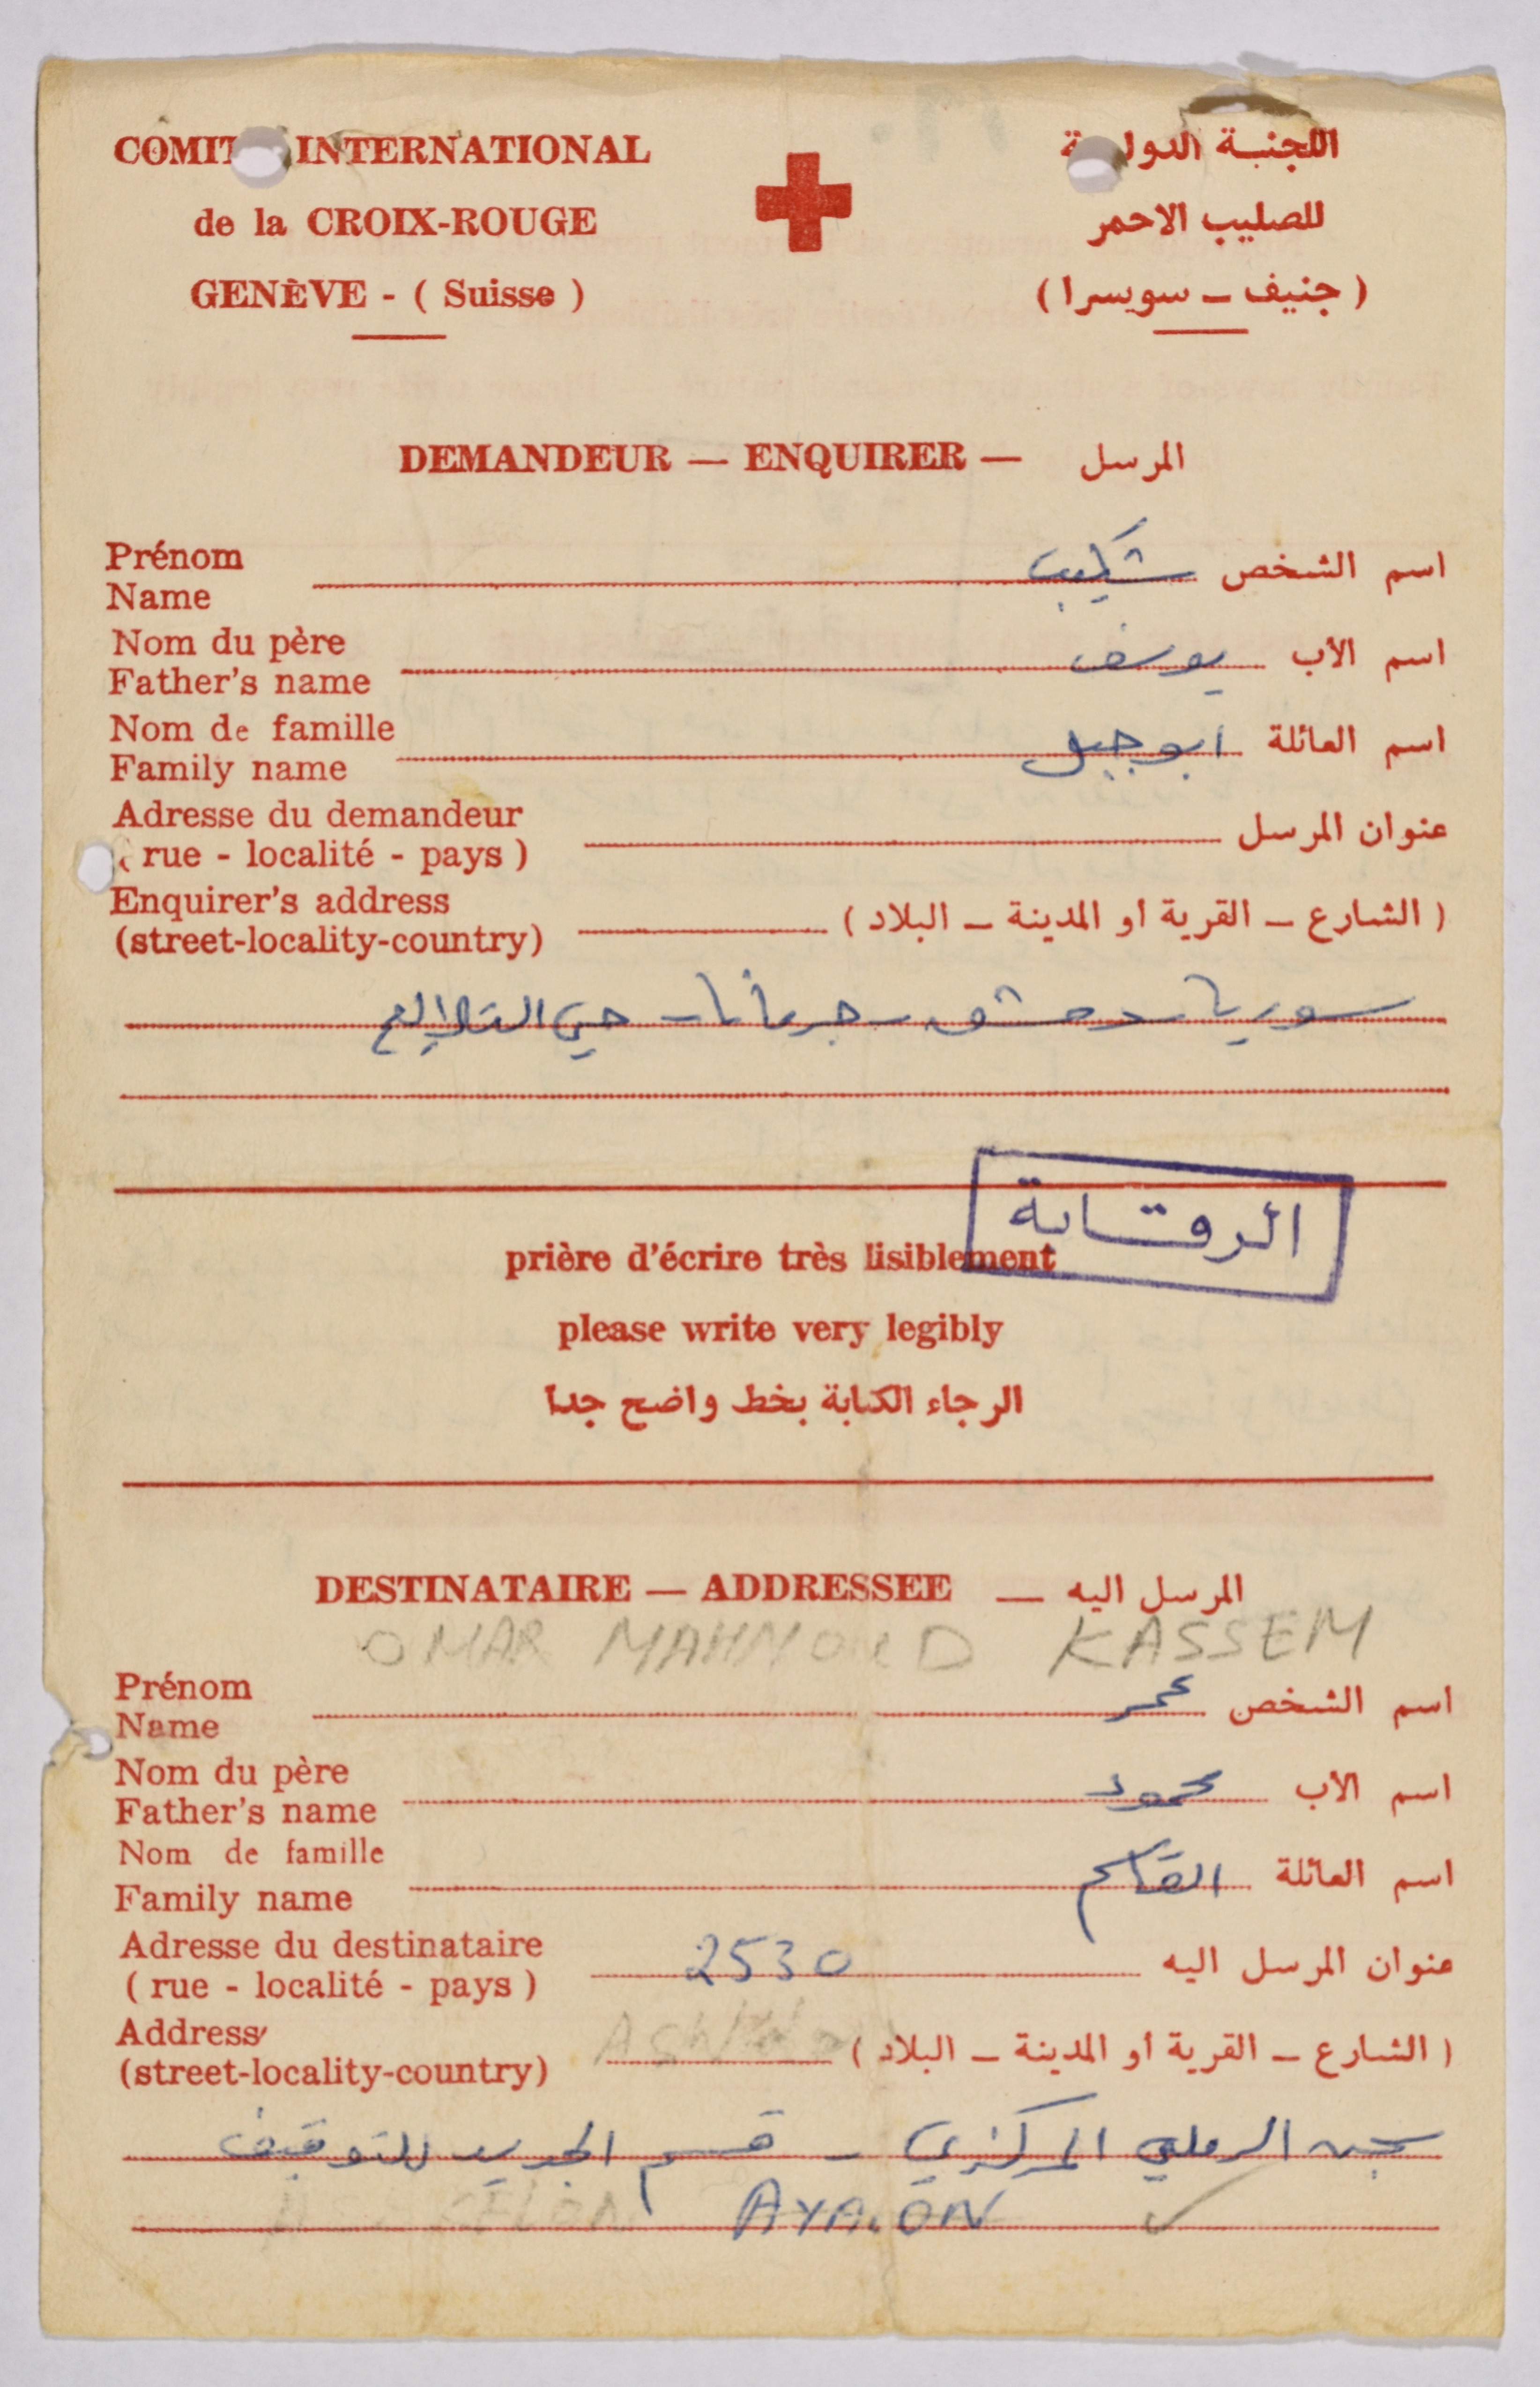 COMIT INTERNATIONAL
de la CROIX-ROUGE
GENÈVE - ( Suisse )
اللجنة الدولية
للصليب الاحمر
( جنيف – سويسرا )
DEMANDEUR — ENQUIRER — المرسل
Prénom
Name
اسم الشخص شكيب
Nom du père
Father's name
اسم الأب يوسف
Nom de famille
Family name
اسم العائلة ابو جبل
Adresse du demandeur
( rue - localité - pays )
عنوان المرسل
Enquirer's address
(street-locality-country)
( الشارع – القرية أو المدينة – البلاد )
سوريا – دمشق – جرمانا – حي
الرقابة
prière d'écrire très lisiblement
please write very legibly
الرجاء الكتابة بخط واضح جدا
DESTINATAIRE — ADDRESSEE — المرسل اليه
OMAR MAHMOUD KASSEM
Prénom
Name
اسم الشخص عمر
Nom du père
Father's name
اسم الأب محمود
Nom de famille
Family name
اسم العائلة القاسم
Adresse du destinataire
( rue - localité - pays )
2530
عنوان المرسل اليه
Address
(street-locality-country)
( الشارع – القرية أو المدينة – البلاد )
سجن الرملي المركزي – قسم الجديد للتوقيف
AYALON